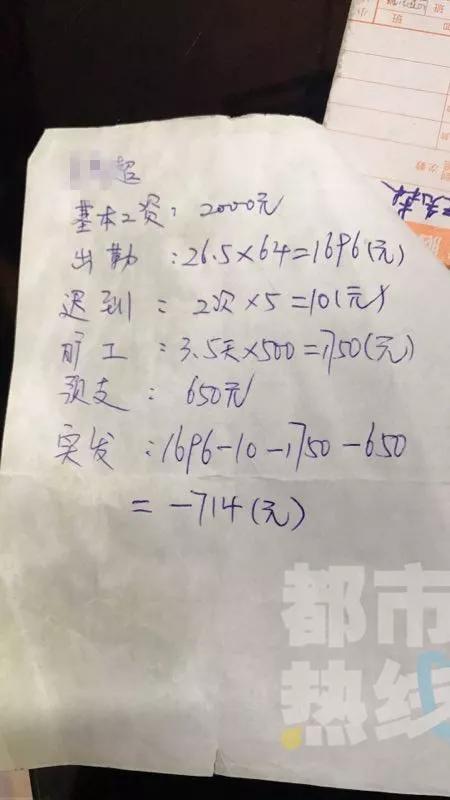 超
基本工资：2000元
出勤：26.5×64=1696(元)
迟到：2次×5=10(元)
旷工：3.5天×500=1750(元)
预支：650元
实发：1696-10-1750-650
=-714(元)
班
班
都市
热线